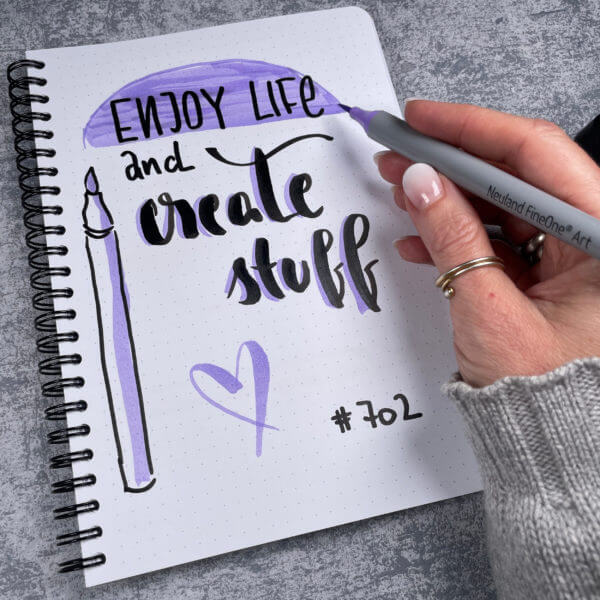 ENJOY LIFe
and
create
stuff
#702
Neuland FineOne® Art